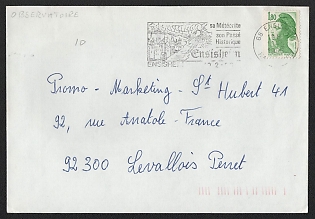 OBSERVATOIRE
10
sa Météorite
son Passé
Historique
Ensisheim
ENSISHEIM
68 ENSI
1,80
Promo - Marketing - St Hubert 41
92, rue Anatole - France
92300 Levallois Perret